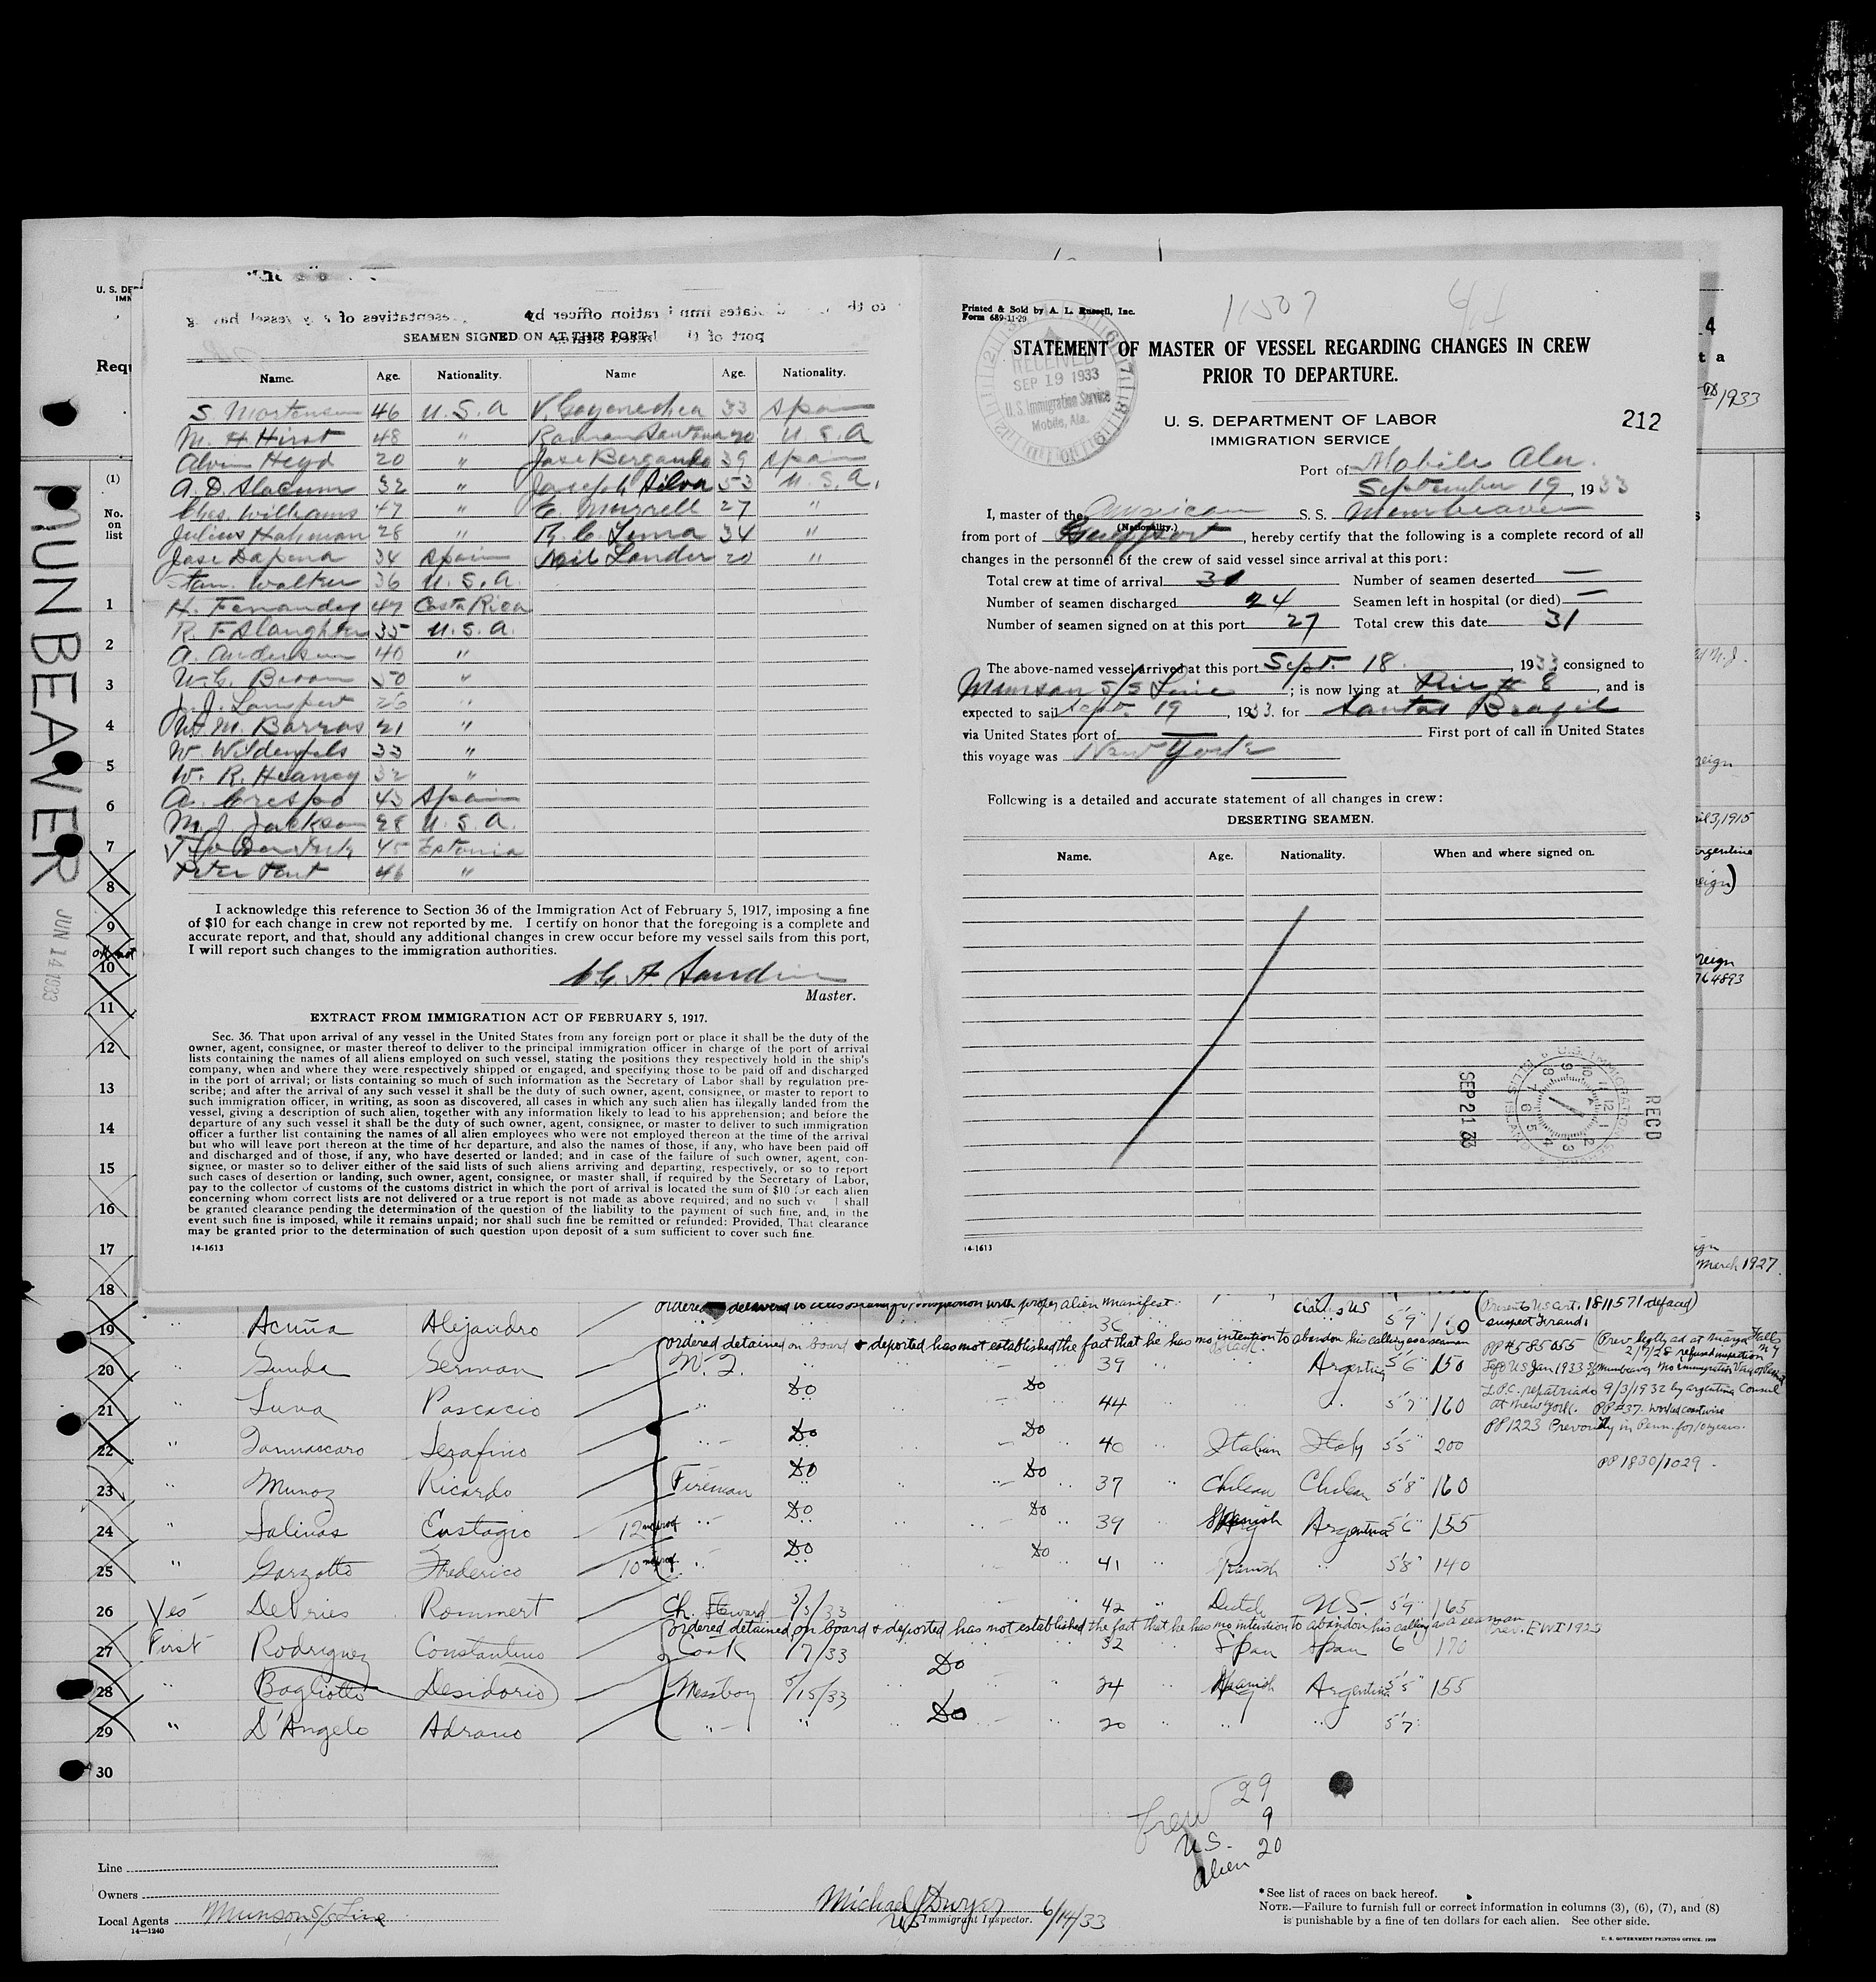 MUNBEAVER
JUN 14 1933
U. S. DE
IMM
Requ
(1)
No.
on
list
SEAMEN SIGNED ON AT THIS PORT.
Name. Age. Nationality. Name Age. Nationality.
S. Mortensen 46 U.S.A V. Goyenechea 33 Spain
M. H. Hirst 48 " Raman Santana U.S.A
Alvin Heyd 20 " Jose Bergando 39 Spain
A. D. Slacum 32 " Joseph Silva 53 U.S.A.
Chas. Williams 47 " E. Murrell 27 "
Julius Hahman 28 " R. C. Luma 34 "
Jose Dapena 34 Spain Neil Lander 20 "
Walker 36 U.S.A.
H. Fernandez 47 Costa Rica
R. F. Slaughter 35 U.S.A.
A. Anderson 40 "
W. G. Broom 50 "
J. Lampert 26 "
W. M. Barras 21 "
W. Wildenfels 33 "
W. R. Heaney 32 "
A. Crespo 43 Spain
M. J. Jackson 28 U.S.A.
45 Estonia
Peter Pant 46 "
I acknowledge this reference to Section 36 of the Immigration Act of February 5, 1917, imposing a fine
of $10 for each change in crew not reported by me. I certify on honor that the foregoing is a complete and
accurate report, and that, should any additional changes in crew occur before my vessel sails from this port,
I will report such changes to the immigration authorities.
Master.
EXTRACT FROM IMMIGRATION ACT OF FEBRUARY 5, 1917.
Sec. 36. That upon arrival of any vessel in the United States from any foreign port or place it shall be the duty of the
owner, agent, consignee, or master thereof to deliver to the principal immigration officer in charge of the port of arrival
lists containing the names of all aliens employed on such vessel, stating the positions they respectively hold in the ship's
company, when and where they were respectively shipped or engaged, and specifying those to be paid off and discharged
in the port of arrival; or lists containing so much of such information as the Secretary of Labor shall by regulation pre-
scribe; and after the arrival of any such vessel it shall be the duty of such owner, agent, consignee, or master to report to
such immigration officer, in writing, as soon as discovered, all cases in which any such alien has illegally landed from the
vessel, giving a description of such alien, together with any information likely to lead to his apprehension; and before the
departure of any such vessel it shall be the duty of such owner, agent, consignee, or master to deliver to such immigration
officer a further list containing the names of all alien employees who were not employed thereon at the time of the arrival
but who will leave port thereon at the time of her departure, and also the names of those, if any, who have been paid off
and discharged and of those, if any, who have deserted or landed; and in case of the failure of such owner, agent, con-
signee, or master so to deliver either of the said lists of such aliens arriving and departing, respectively, or so to report
such cases of desertion or landing, such owner, agent, consignee, or master shall, if required by the Secretary of Labor,
pay to the collector of customs of the customs district in which the port of arrival is located the sum of $10 for each alien
concerning whom correct lists are not delivered or a true report is not made as above required; and no such v l shall
be granted clearance pending the determination of the question of the liability to the payment of such fine, and, in the
event such fine is imposed, while it remains unpaid; nor shall such fine be remitted or refunded: Provided, That clearance
may be granted prior to the determination of such question upon deposit of a sum sufficient to cover such fine.
14-1613
Printed & Sold by A. L. Russell, Inc.
Form 689-11-29
11507
STATEMENT OF MASTER OF VESSEL REGARDING CHANGES IN CREW
PRIOR TO DEPARTURE.
RECEIVED
SEP 19 1933
U.S. Immigration Service
Mobile, Ala.
U. S. DEPARTMENT OF LABOR
IMMIGRATION SERVICE
212
Port of Mobile Ala.
September 19, 1933
I, master of the American S. S. Munbeaver
(Nationality.)
from port of Gulfport, hereby certify that the following is a complete record of all
changes in the personnel of the crew of said vessel since arrival at this port:
Total crew at time of arrival Number of seamen deserted —
Number of seamen discharged 24 Seamen left in hospital (or died) —
Number of seamen signed on at this port 27 Total crew this date 31
The above-named vessel arrived at this port Sept. 18, 1933 consigned to
Munson S/S Line; is now lying at Pier # 8, and is
expected to sail Sept. 19, 1933. for Santos Brazil
via United States port of — First port of call in United States
this voyage was New York
Following is a detailed and accurate statement of all changes in crew:
DESERTING SEAMEN.
Name. Age. Nationality. When and where signed on.
SEP 21 33
REC'D
14-1613
1
2
3
4
5
6
7
8
9
10
11
12
13
14
15
16
17
18
March 1927
claims US (Presents US cert. 1811571 defaced)
19 " Acuña Alejandro 36 5'9 suspect fraud
ordered detained on board & deported has not established the fact that he has no intention to abandon his calling as a seaman
20 " Sunde German W. T. 39 Argentine 5'6 150
21 " Luna Pascacio " Do Do 44 5'7 160
22 " Tannascaro Serafino " Do Do 40 Italian Italy 5'5 200
PP 1830/1029
23 " Munoz Ricardo Fireman Do Do 37 Chilean Chilean 5'8" 160
24 " Salinas Eustagio " Do Do 39 Spanish Argentine 5'6" 155
25 " Garzotto Frederico " Do Do 41 Spanish " 5'8" 140
26 Yes DeVries Rommert Ch. Steward 5/5/33 42 Dutch U.S. 5'9" 165
ordered detained on board & deported has not established the fact that he has no intention to abandon his calling as a seaman
27 First Rodriguez Constantino Cook 7/33 32 Span Span 6 170
28 " Bagliotto Desidorio Messboy 5/15/33 Do 24 Spanish Argentine 5'5" 155
29 " D'Angelo Adrano " " Do 20 " " 5'7"
30
Crew 29
U.S. 9
Alien 20
Line
Owners
Local Agents Munson S/S Line
14—1240
Michael J Dwyer 6/14/33
US Immigrant Inspector.
* See list of races on back hereof.
NOTE.—Failure to furnish full or correct information in columns (3), (6), (7), and (8)
is punishable by a fine of ten dollars for each alien. See other side.
U. S. GOVERNMENT PRINTING OFFICE